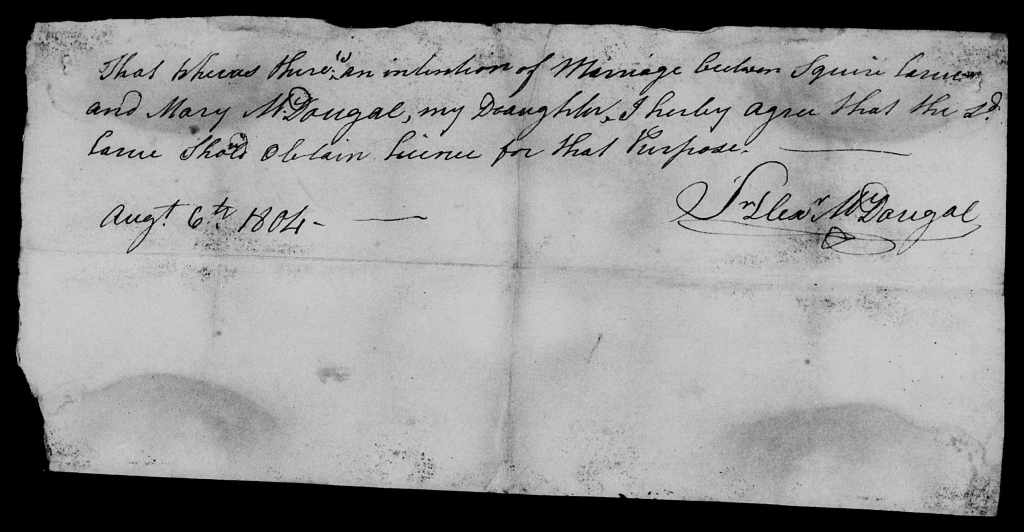 That whereas there is an intention of Marriage between Squire Carue
and Mary McDougal, my Daaughter, I herby agree that the Sd.
Carue Should Obtain Licence for that Purpose.
Augt. 6th. 1804
Alexr McDougal